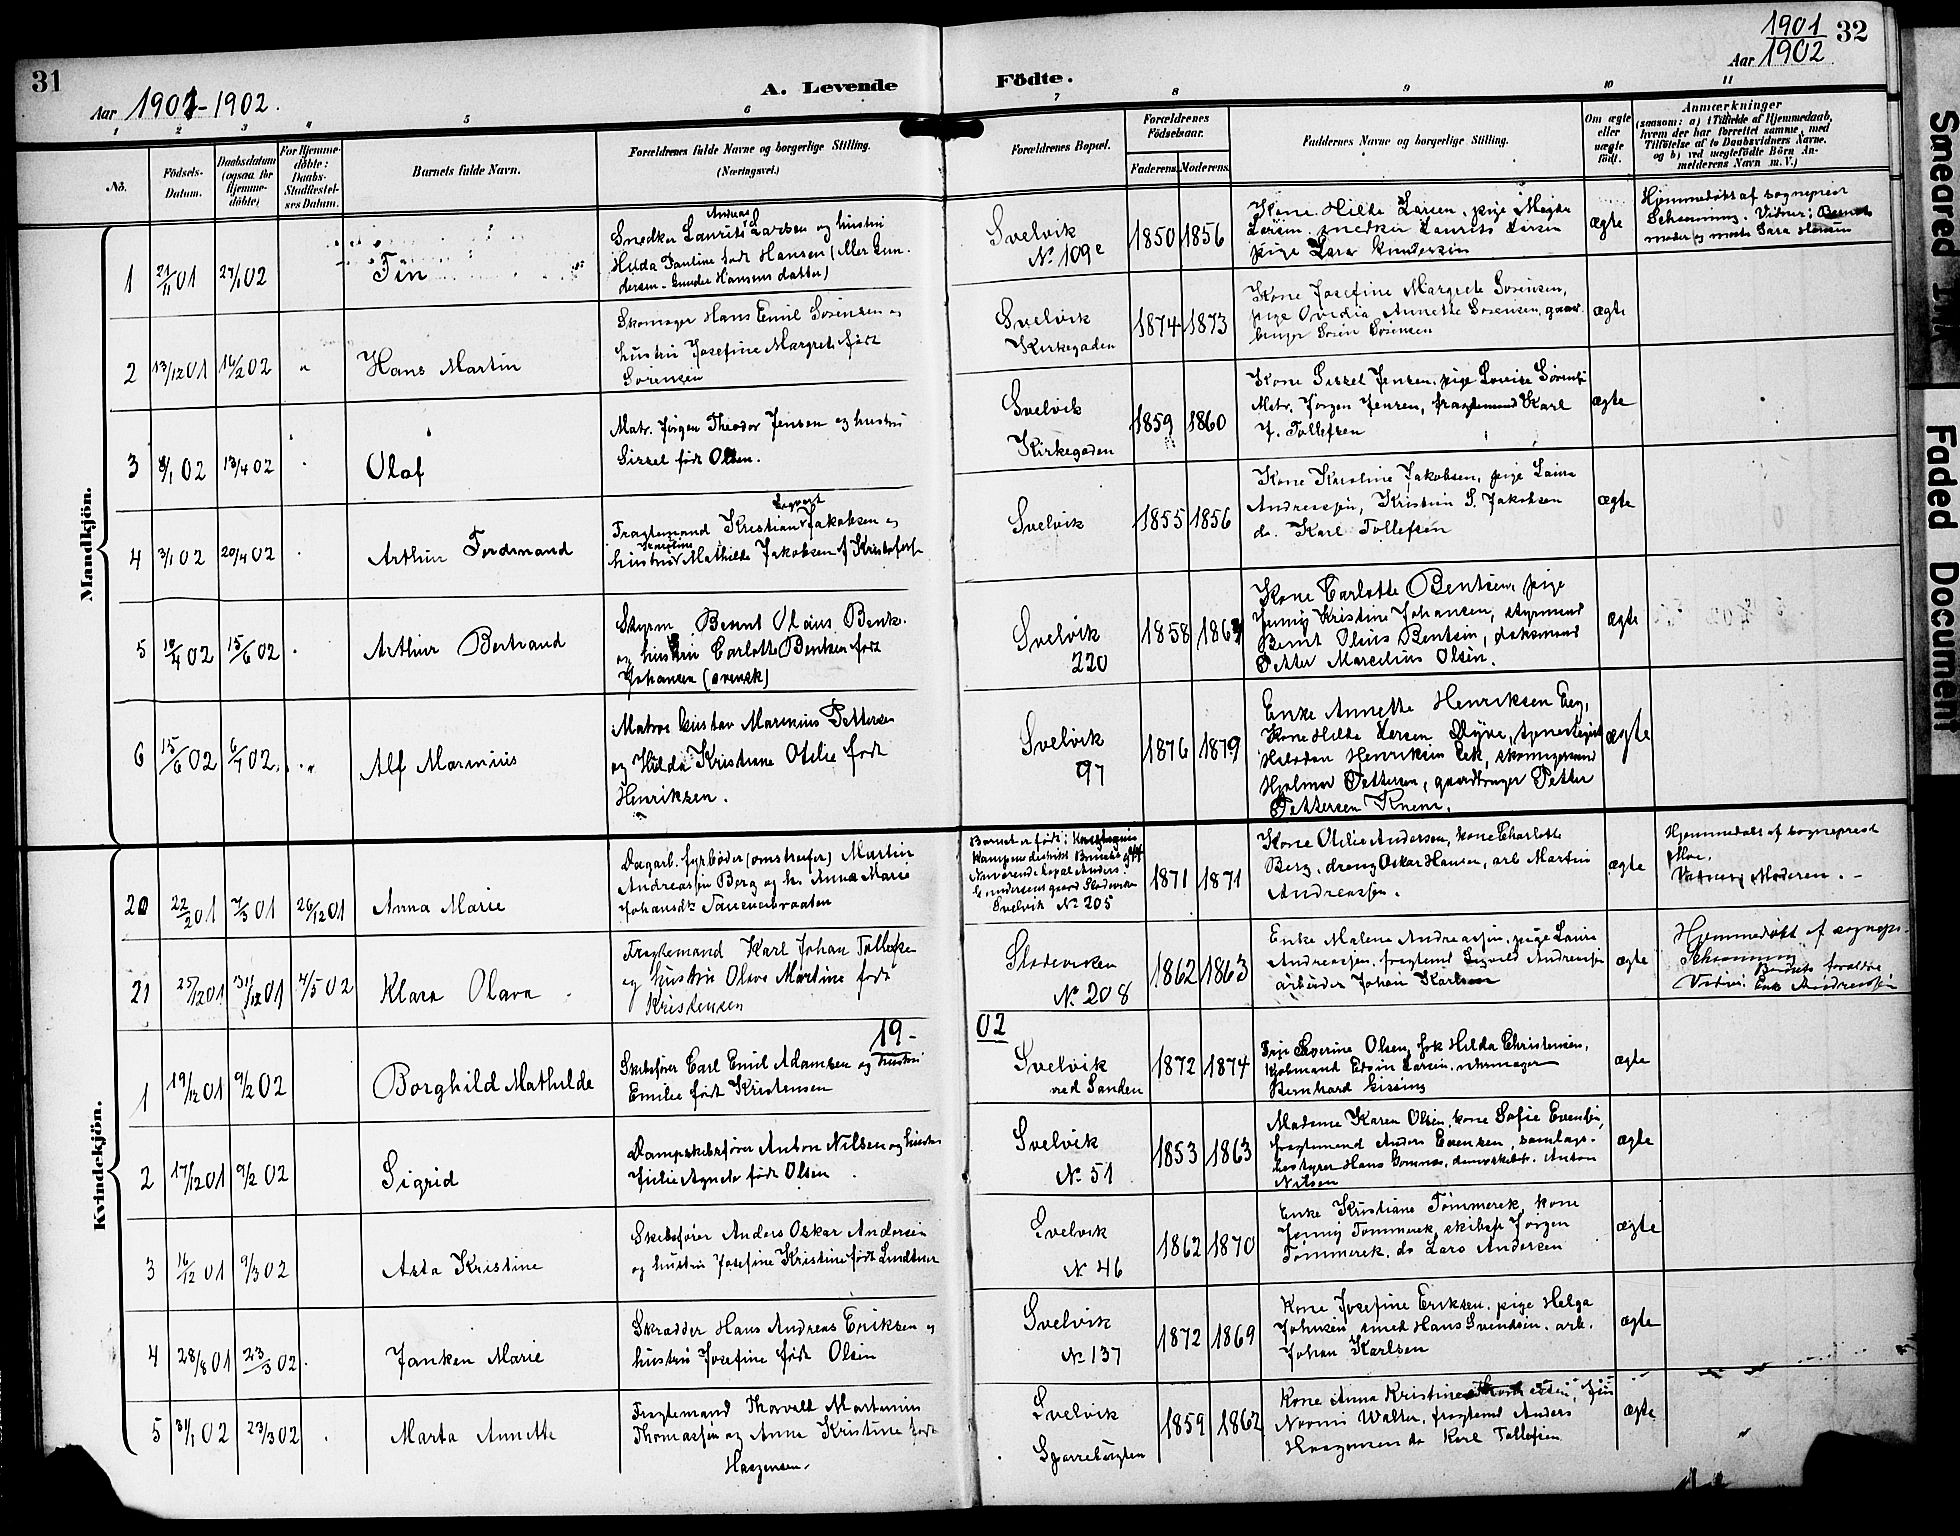 31
Aar 1901-1902.
A. Levende
Födte.
1901
1902
Aar
32
1
2
3
4
5
6
7
8
9
10
11
No.
Födsels-
Datum.
Daabsdatum
(ogsaa for
Hjemme-
döbte)
For Hjemme-
döbte:
Daabs-
Stadfæstel-
ses Datum.
Barnets fulde Navn.
Forældrenes fulde Navne og borgerlige Stilling.
(Næringsvei.)
Forældrenes Bopæl.
Forældrenes
Födselsaar.
Faderens.
Moderens.
Faddernes Navne og borgerlige Stilling.
Om ægte
eller
uægte
födt.
Anmærkninger
(saasom: a) i Tilfælde af Hjemmedaab,
hvem der har forrettet samme, med
Tilföielse af to Daabsvidners Navne.
og b) ved uægtefödte Börn An-
melderens Navn m. V.)
Mandkjön.
1
21/11 01
27/1 02
Fin
Snedker Laurits Andreas Larsen og hustru
Hilda Pauline født Hansen (eller Gun-
dersen - Gunder Hansens datter)
Svelvik
No 109e
1850
1856
Kone Hilda Larsen, pige Magda
Larsen, snedker Laurits Larsen
pige Lara Gundersen
ægte
Hjemmedøbt af sogneprest
Schanning. Vidner:
moder og Sara Hansen
2
13/12 01
16/2 02
"
Hans Martin
Skomager Hans Emil Sørensen og
hustru Josefine Margrete født
Sørensen
Svelvik
Kirkegaden
1874
1873
Kone Josefine Margrete Sørensen,
pige Ovidia Annette Sørensen, gaard-
bruger Sørin Sørensen
ægte
3
8/1 02
13/4 02
Olaf
Matr. Jørgen Theodor Jensen og hustru
Sissel født Olsen.
Svelvik
Kirkegaden
1859
1860
Kone Sissel Jensen, pige Lovise Sørensen
Matr. Jørgen Jensen, fragtemand Karl
J. Tollefsen
ægte
4
3/1 02
20/4 02
Arthur Ferdinand
Fragtemand Kristian Jakobsen og
hustru Karoline Mathilde Jakobsen f. Kristofers.
Svelvik
1855
1856
Kone Karoline Jakobsen, pige Laura
Andreassen, Kristian S. Jakobsen
do. Karl Tollefsen
ægte
5
18/4 02
15/6 02
Arthur Bertrand
Styrm Bernt Olaus Bents.
og hustru Carlotte Bentsen født
Johansen (svensk)
Svelvik
220
1858
1863
Kone Carlotte Bentsen, pige
Jenny Kristine Johansen, styrmand
Bernt Olaus Bentsen, daksmand
Petter Marcelius Olsen.
ægte
6
15/6 02
6/7 02
"
Alf Marinius
Matros Gustav Marinius Pettersen
og Hilda Kristiane Otilie født
Henriksen.
Svelvik
97
1876
1879
Enke Annette Henriksen Eeg,
Kone Hilda Larsen Dyve,
Halvdan Henriksen Eek, skomagersvend
Hjalmar Pettersen, gaardbruger Petter
Pettersen Knem.
ægte
Kvindekjön.
20
22/2 01
7/3 01
26/12 01
Anna Marie
Dagarb. fyrbøder (omstreifer) Martin
Andreassen Berg og h. Anna Marie
Johansdtr
Barnet er født i
Kampens distrikt
Nuværende bopæl Anders
Gundersens gaard Stadeviken
Svelvik No 205
1871
1871
Kone Otilie Andersen, kone Charlotte
Berg, dreng Oskar Hansen, arb Martin
Andreassen.
ægte
Hjemmedøbt af sogneprest
Moe.
Moderen.
21
25/12 01
31/12 01
4/5 02
Klara Olava
Fragtemand Karl Johan Tollefsen
og hustru Olava Martine født
Kristensen
Stadeviken
No 208
1862
1863
Enke Malene Andreassen, pige Laura
Andreassen, fragtemd Sigvald Andreassen
arbeider Johan Karlsen
ægte
Hjemmedøbt af sognepr.
Schanning
Vidner: Barnets forældre
Enke Andreassen
19-
02
1
19/12 01
9/2 02
Borghild Mathilde
Skibsfører Carl Emil Adamsen og hustru
Emilie født Kristensen
Svelvik
ved Sanden
1872
1874
Frue Severine Olsen, frk Hilda Christensen,
Kjøbmand Edvin Larsen, uhrmager
Bernhard Gissing
ægte
2
17/12 01
9/2 02
Sigrid
Dampskibsfører Anton Nilsen og hustru
Julie Agnete født Olsen
Svelvik
No 51
1853
1863
Madame Karen Olsen, kone Sofie Evensen,
fragtemand Anders Evensen, samlags-
bestyrer Hans Gomnæs, dampskibsf. Anton
Nilsen
ægte
3
16/12 01
9/3 02
Asta Kristine
Skibsfører Anders Oskar Andersen
og hustru Josefine Kristine født Lindtner
Svelvik
No 46
1862
1870
Enke Kristiane Tømmerek, kone
Jenny Tømmerek, skibsf Jørgen
Tømmerek, do Lars Andersen
ægte
4
28/8 01
23/3 02
Janken Marie
Skrædder Hans Andreas Eriksen og
hustru Josefine født Olsen
Svelvik
No 137
1872
1869
Kone Josefine Eriksen, pige Helga
Johnsen, smed Hans Svendsen, arb.
Johan Karlsen
ægte
5
31/1 02
23/3 02
Marta Annette
Fragtemand Thorvald Martinius
Thomassen og Anne Kristine født
Haagensen.
Svelvik
Sparrebørgten
1859
1862
Kone Anna Kristine
Naomi Walter, fragtemd Anders
Haagensen do Karl Tollefsen
ægte
Smeared Ink
Faded Document